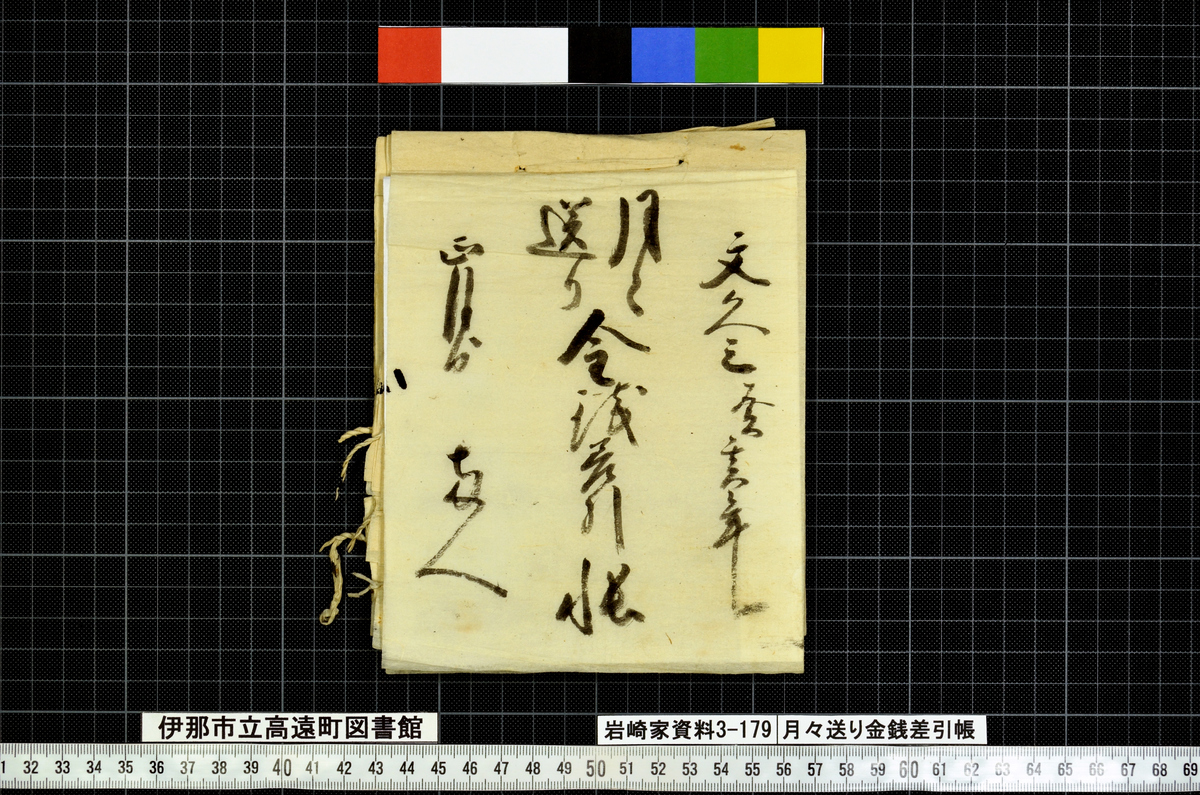 文久三癸亥年
月々
送り
金銭差引帳
正月
伊那市立高遠町図書館
岩崎家資料3-179 月々送り金銭差引帳
1 32 33 34 35 36 37 38 39 40 41 42 43 44 45 46 47 48 49 50 51 52 53 54 55 56 57 58 59 60 61 62 63 64 65 66 67 68 69